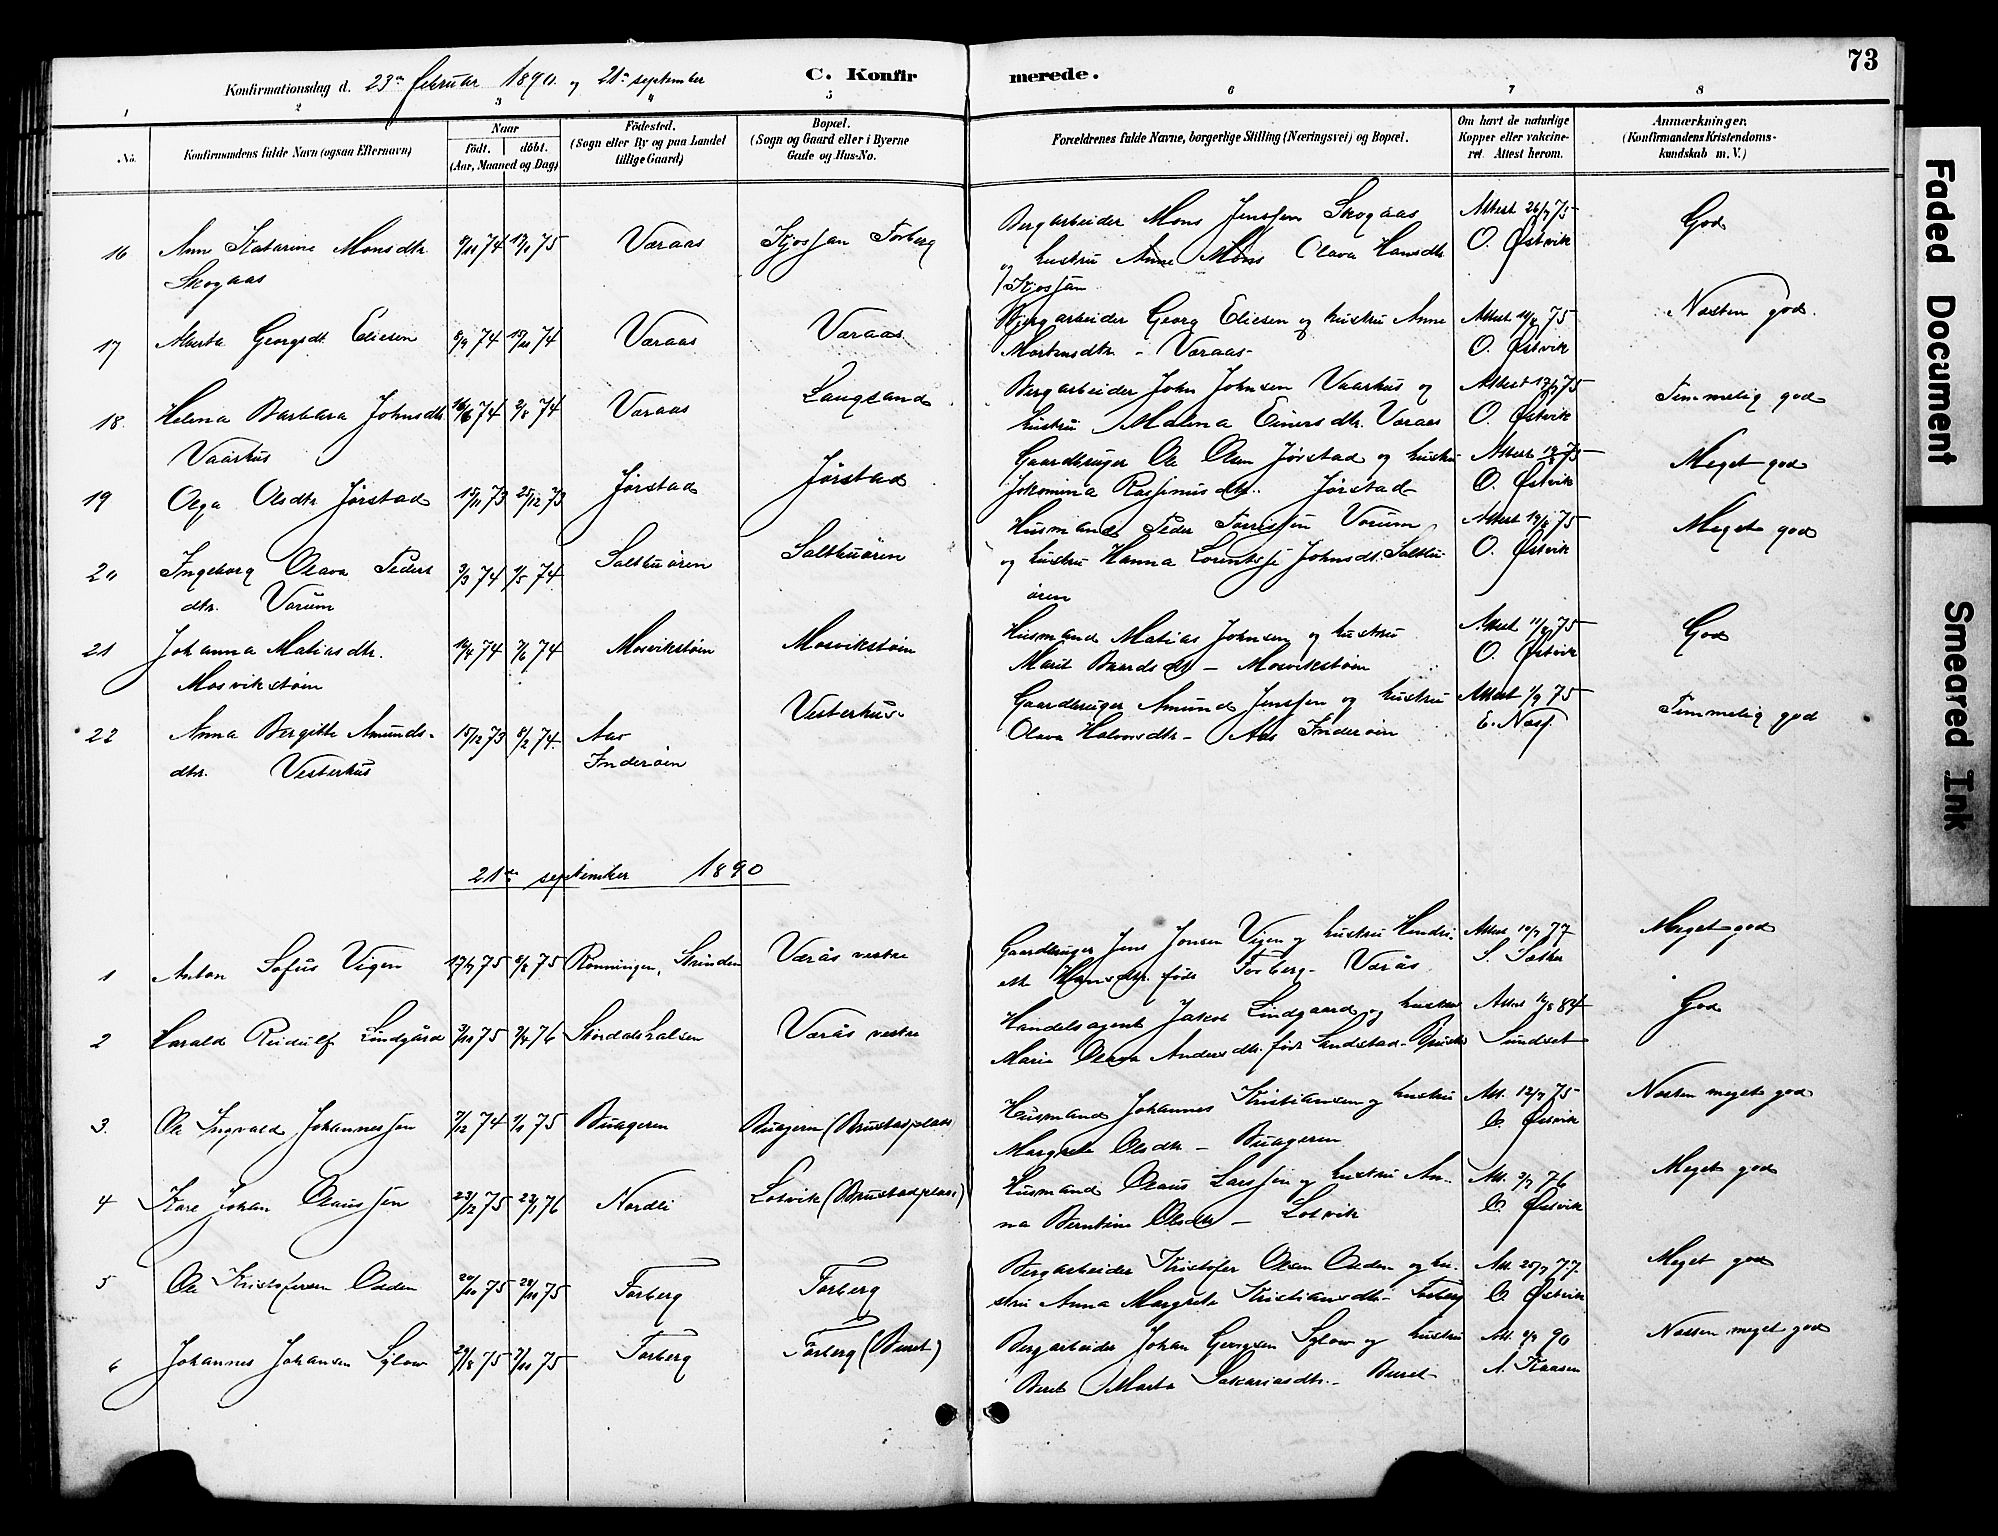 73
Konfirmationsdag d. 23de februar 1890 og 21de september
C. Konfirmerede.
1 2 3 4 5 6 7 8
No.
Konfirmandens fulde Navn (ogsaa Efternavn)
Naar
födt. döbt.
(Aar, Maaned og Dag)
Födested.
(Sogn eller By og paa Landet
tillige Gaard)
Bopæl.
(Sogn og Gaard eller i Byerne
Gade og Hus-No.
Forældrenes fulde Navne, borgerlige Stilling (Næringsvei) og Bopæl.
Om havt de naturlige
Kopper eller vakcine-
ret. Attest herom.
Anmærkninger.
(Konfirmandens Kristendoms-
kundskab m. V.)
16 Ane Katarine Monsdtr. 9/11 74 17/1 75 Væraas Kjossan Forberg
Skogaas
Bergarbeider Mons Jenssen Skogaas
og hustru Anne Mons Olava Hansdtr.
Kjossan
Attest 26/7 75
O. Østvik
God
17 Marta Georgsdt. Eliesen 8/9 74 15/11 74 Væraas Væraas
Bergarbeider Georg Eliesen og hustru Anne
Mortensdtr - Væraas
Attest 75
O. Østvik
Næsten god.
18. Helena Barbara Johnsdtr 16/6 74 2/8 74 Væraas Langsand
Vaarhus
Bergarbeider John Johnsen Vaarhus og
hustru Malena Einersdtr. Væraas
Attest 75
O. Østvik
Temmelig god
19 Olga Olsdtr Jørstad 15/11 73 25/12 73 Jørstad Jørstad
Gaardbruger Ole Olsen Jørstad og hustru
Jokomina Rassmusdtr. Jørstad
Attest 75
O. Østvik
Meget god
20 Ingeborg Olava Peders 2/3 74 1/5 74 Salthuören Salthuören
dtr. Vorum
Husmand Peder Torressen Vorum
og hustru Hanna Lorentse Johnsdt. Salthu
ören
Attest 19/8 75
O. Østvik
Meget god
21 Johanna Matiasdtr. 19/4 74 7/6 74 Mosvikstøin Mosvikstøin
Mosvikstøin
Husmand Matias Johnsen og hustru
Marit Baardsdtr - Mosvikstøin
Attest 75
O. Østvik
God
22 Anna Bergitte Amunds- 15/12 73 8/2 74. Aas Vesterhus
dtr. Vesterhus Inderøen
Gaardbruger Amund Jenssen og hustru
Olava Halvorsdtr - Aas Inderøen
Attest 1/9 75
E. Næss
Temmelig god
21de september 1890
1 Anton Sofus Vigen 17/7 75 8/8 75 Rønningen, Strinden Værås vestre
Gaardbruger Jens Jonsen Vigen og hustru Hendri-
ette Hansdtr. født Forberg - Værås
Attest 10/7 77
S. Sæther
Meget god
2 Harald Rudulf Lindgård 75 76 Stordalshalsen Værås vestre
Handelsagent Jakob Lindgaard og hustru
Marie Olava Andersdtr. født Sundstad
Attest 84
Sundset
God
3. Ole Ingvald Johannessen 7/12 74 1/1 75 Buageren Buageren (Brustadplads)
Husmand Johannes Kristiansen og hustru
Margrete Olsdtr - Buageren
Att. 12/7 75
O. Østvik
Næsten meget god
4 Kare Johan Olaussen 23/12 75 23/1 76 Nordli Losvik (Brustadplads)
Husmand Olaus Larssen og hustru An-
na Berntine Olsdtr - Losvik
Att. 2/7 76
O. Østvik
Meget god
5 Ole Kristofersen Olden 20/10 75 28/11 75 Forberg Forberg
Bergarbeider Kristofer Olsen Olden og hu-
stru Anna Margrete Kristiansdtr. Forberg
Att. 25/7 77.
O. Østvik
Meget god
6 Johannes Johansen Sylow 29/8 75 75 Forberg Forberg (Buret)
Bergarbeider Johan Georgsen Sylow og hustru
Beret Marta Sakariasdtr. - Buret
Att. 90
A. Kaasen
Næsten meget god
Faded Document
Smeared Ink